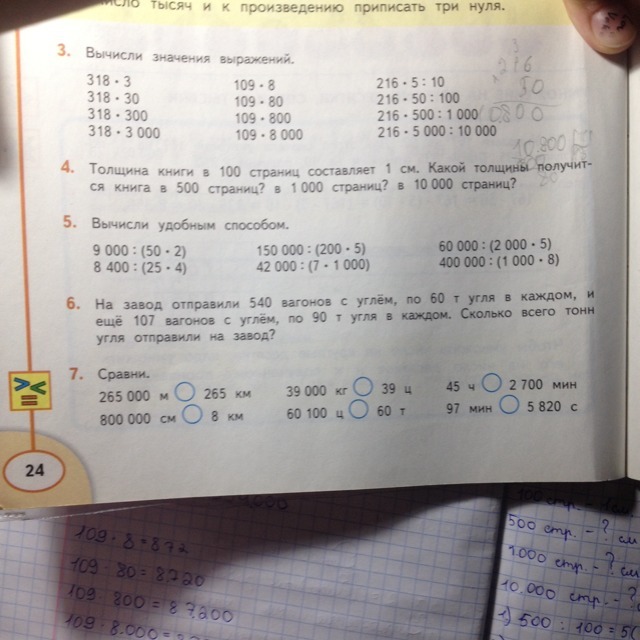 число тысяч и к произведению приписать три нуля.
3. Вычисли значения выражений.
318 · 3 109 · 8 216 · 5 : 10
318 · 30 109 · 80 216 · 50 : 100
318 · 300 109 · 800 216 · 500 : 1 000
318 · 3 000 109 · 8 000 216 · 5 000 : 10 000
4. Толщина книги в 100 страниц составляет 1 см. Какой толщины получит-
ся книга в 500 страниц? в 1 000 страниц? в 10 000 страниц?
5. Вычисли удобным способом.
9 000 : (50 · 2) 150 000 : (200 · 5) 60 000 : (2 000 · 5)
8 400 : (25 · 4) 42 000 : (7 · 1 000) 400 000 : (1 000 · 8)
6. На завод отправили 540 вагонов с углём, по 60 т угля в каждом, и
ещё 107 вагонов с углём, по 90 т угля в каждом. Сколько всего тонн
угля отправили на завод?
7. Сравни.
265 000 м 265 км 39 000 кг 39 ц 45 ч 2 700 мин
800 000 см 8 км 60 100 ц 60 т 97 мин 5 820 с
24
109 · 8 = 872
109 · 80 = 8720
109 · 800 = 87200
109 · 8.000 =
500 стр. – ? см
1.000 стр. – ? см
10.000 стр. – ?
1) 500 : 100 =